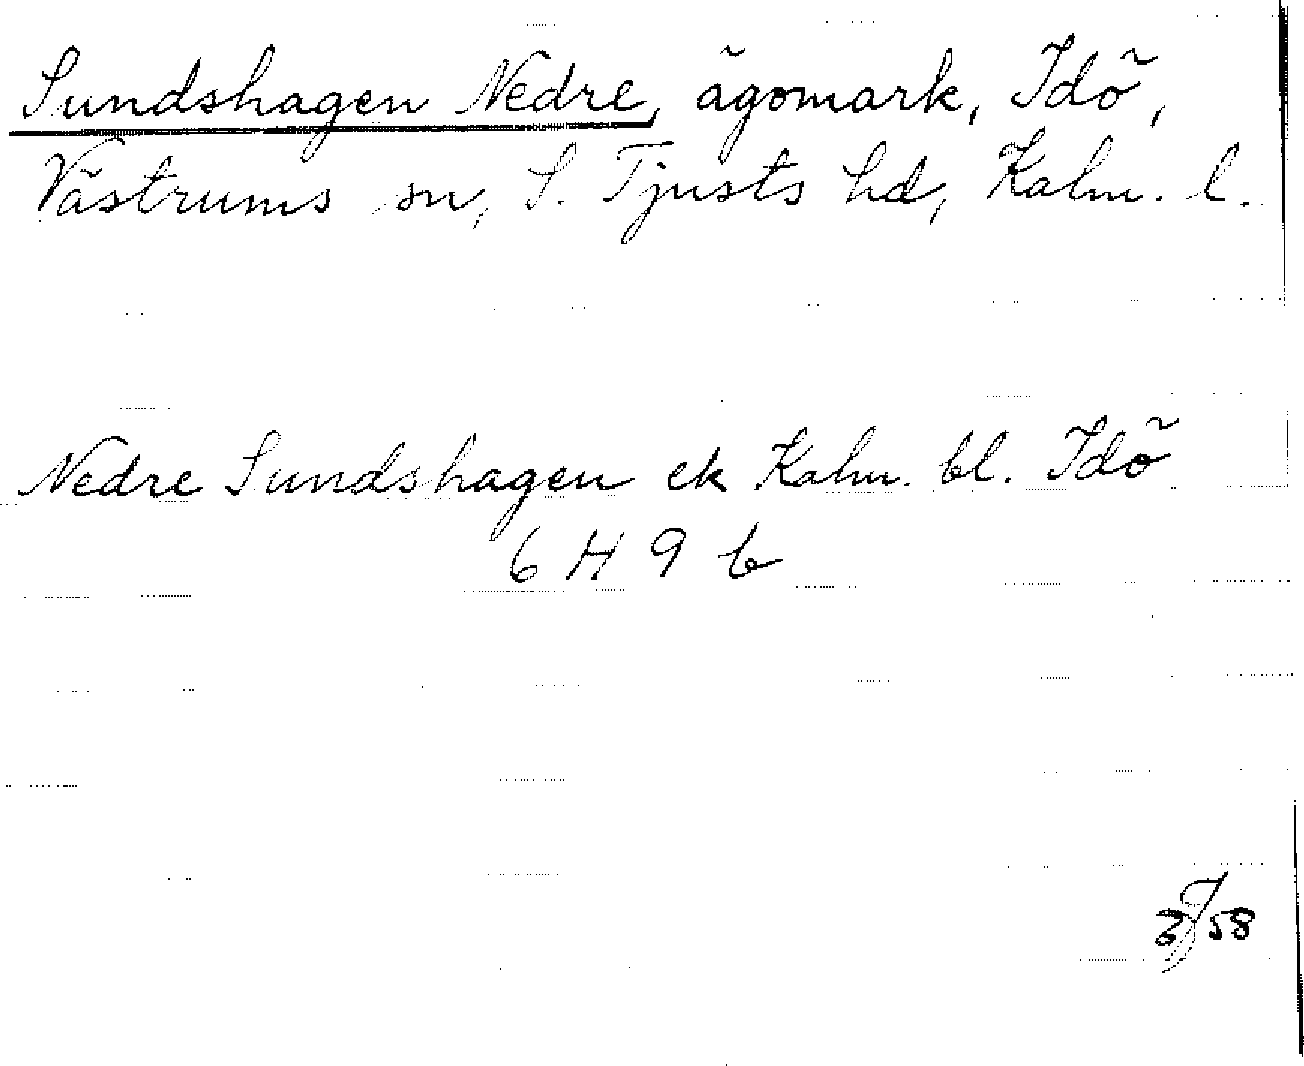 Sundshagen Nedre, ägomark, Idö,
Västrums sn, S. Tjusts hd, Kalm. l.
Nedre Sundshagen ek Kalm. bl. Idö
6 H 9 b
58